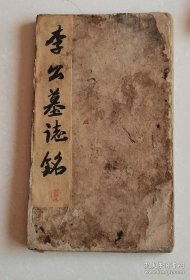 李公墓誌銘